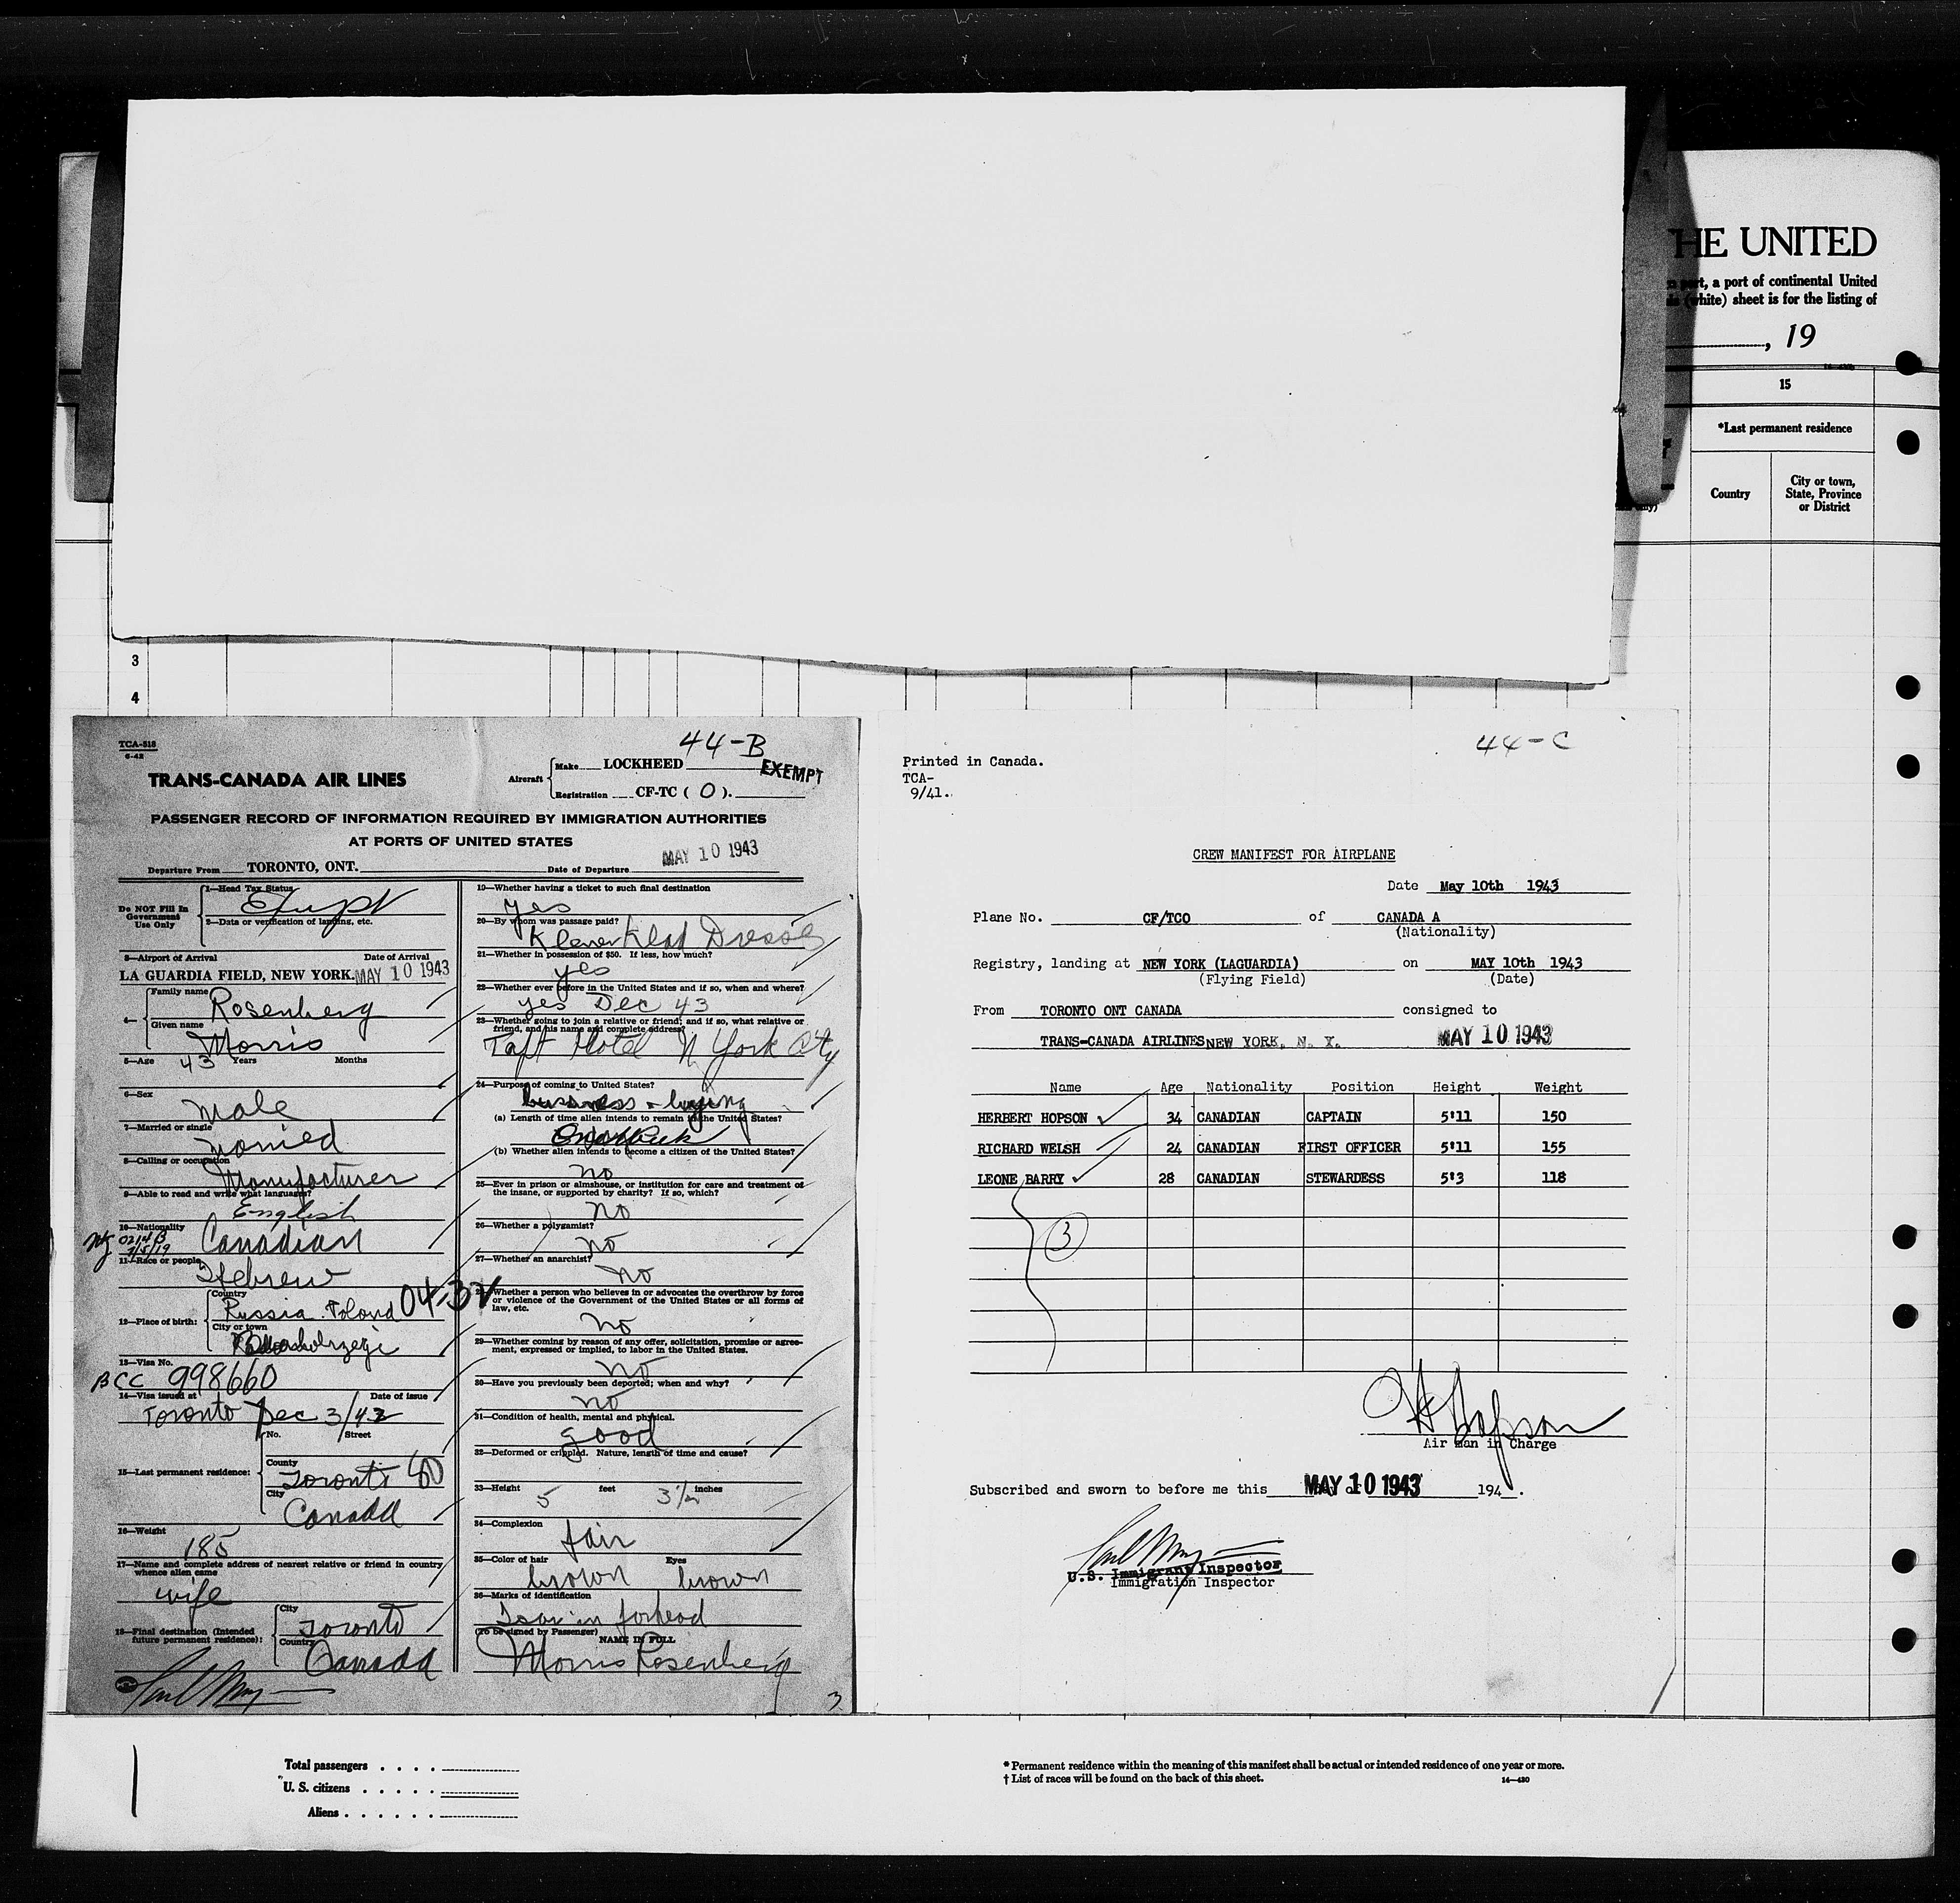 THE UNITED
port, a port of continental United
(white) sheet is for the listing of
, 19
15
*Last permanent residence
Country
City or town,
State, Province
or District
3
4
TCA-518
6-42
44-B
TRANS-CANADA AIR LINES
Aircraft
Make LOCKHEED
EXEMPT
Registration CF-TC ( O ).
PASSENGER RECORD OF INFORMATION REQUIRED BY IMMIGRATION AUTHORITIES
AT PORTS OF UNITED STATES
Departure From TORONTO, ONT. Date of Departure MAY 10 1943
Do NOT Fill In
Government
Use Only
1—Head Tax Status
2—Date or verification of landing, etc.
3—Airport of Arrival Date of Arrival
LA GUARDIA FIELD, NEW YORK. MAY 10 1943
4—
Family name Rosenberg
Given name
Morris
5—Age 43 Years Months
6—Sex
Male
7—Married or single
married
8—Calling or occupation
Manufacturer
9—Able to read and write what languages?
English
10—Nationality
Canadian
11—Race or people
Hebrew
12—Place of birth:
Country
Russia Poland 04-32
City or town
13—Visa No.
BCC 998660
14—Visa issued at Date of issue
Toronto Dec 3/42
15—Last permanent residence:
No. Street
County
Toronto
City
Canada
16—Weight
185
17—Name and complete address of nearest relative or friend in country
whence alien came
wife
18—Final destination (Intended
future permanent residence):
City
Toronto
Country
Canada
19—Whether having a ticket to such final destination
yes
20—By whom was passage paid?
Klever Klad Dresses
21—Whether in possession of $50. If less, how much?
yes
22—Whether ever before in the United States and if so, when and where?
yes Dec 43
23—Whether going to join a relative or friend; and if so, what relative or
friend, and his name and complete address?
Taft Hotel N York City
24—Purpose of coming to United States?
business - buying
(a) Length of time alien intends to remain in the United States?
(b) Whether alien intends to become a citizen of the United States?
no
25—Ever in prison or almshouse, or institution for care and treatment of
the insane, or supported by charity? If so, which?
no
26—Whether a polygamist?
no
27—Whether an anarchist?
no
Whether a person who believes in or advocates the overthrow by force
or violence of the Government of the United States or all forms of
law, etc.
no
29—Whether coming by reason of any offer, solicitation, promise or agree-
ment, expressed or implied, to labor in the United States.
no
30—Have you previously been deported; when and why?
no
31—Condition of health, mental and physical.
good
32—Deformed or crippled. Nature, length of time and cause?
33—Height 5 feet 3 1/2 inches
34—Complexion
fair
35—Color of hair Eyes
brown brown
36—Marks of identification
Scar in forhead
(To be signed by Passenger)
NAME IN FULL
Morris Rosenberg
3
44-C
Printed in Canada.
TCA-
9/41.
CREW MANIFEST FOR AIRPLANE
Date May 10th 1943
Plane No. CF/TCO of CANADA A
(Nationality)
Registry, landing at NEW YORK (LAGUARDIA) on MAY 10th 1943
(Flying Field) (Date)
From TORONTO ONT CANADA consigned to
TRANS-CANADA AIRLINES NEW YORK, N. Y. MAY 10 1943
Name Age Nationality Position Height Weight
HERBERT HOPSON 34 CANADIAN CAPTAIN 5'11 150
RICHARD WELSH 24 CANADIAN FIRST OFFICER 5'11 155
LEONE BARRY 28 CANADIAN STEWARDESS 5'3 118
3
H Hopson
Air man in Charge
Subscribed and sworn to before me this MAY 10 1943 194 .
U.S. Immigrant Inspector
Immigration Inspector
Total passengers . . . .
U. S. citizens . . . . .
Aliens . . . . . .
* Permanent residence within the meaning of this manifest shall be actual or intended residence of one year or more.
† List of races will be found on the back of this sheet.
14—480